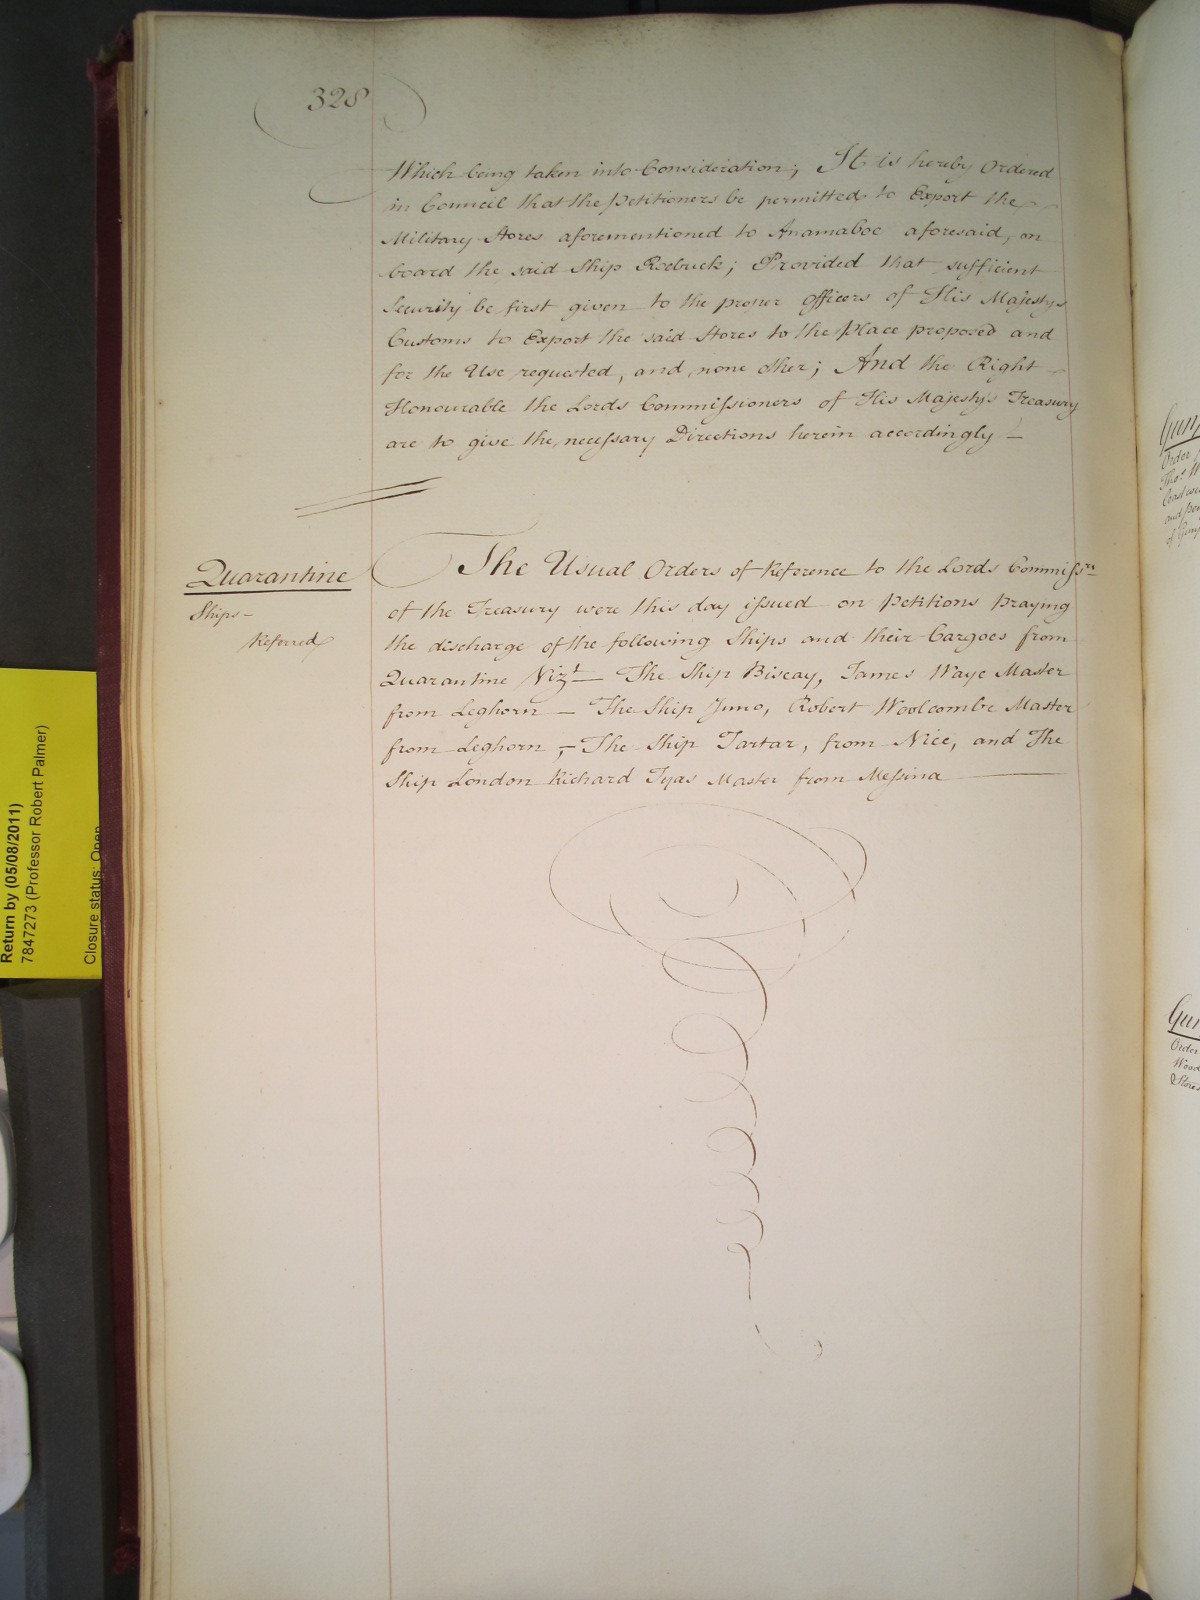 328
Which being taken into Consideration; It is hereby Ordered
in Council that the Petitioners be permitted to Export the
Military Stores aforementioned to Anamaboe aforesaid, on
board the said Ship Roebuck; Provided that sufficient
Security be first given to the proper Officers of His Majestys
Customs to Export the said Stores to the Place proposed and
for the Use requested, and none other; And the Right
Honourable the Lords Commissioners of His Majestys Treasury
are to give the necessary Directions herein accordingly —
Quarantine
Ships —
Referred
The Usual Orders of Reference to the Lords Commissrs
of the Treasury were this day issued on Petitions praying
the discharge of the following Ships and their Cargoes from
Quarantine Vizt — The Ship Biscay, James Waye Master
from Leghorn — The Ship Juno, Robert Woolcombe Master
from Leghorn, — The Ship Tartar, from Nice, and The
Ship London Richard Tyas Master from Messina
Return by (05/08/2011)
7847273 (Professor Robert Palmer)
Closure status: Open
Order
Tho.s W
and
of
Order
Wood
& Stores